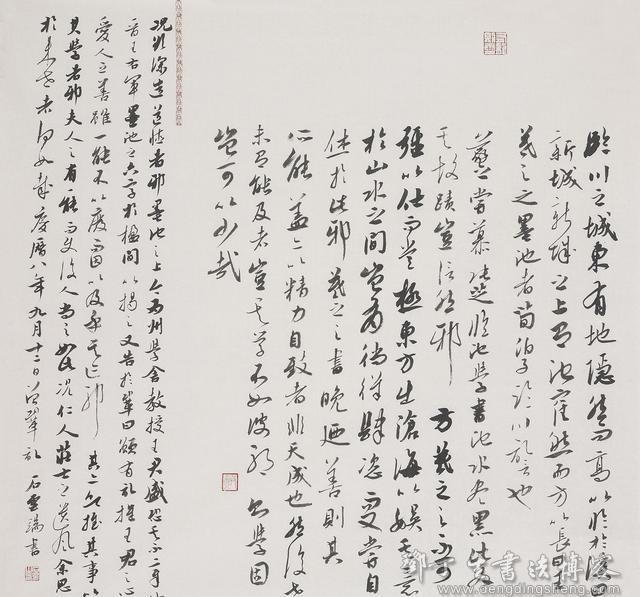 臨川之城東有地隱然而高以臨於溪曰
新城新城之上有池窪然而方以長曰
羲之之墨池者荀伯子臨川記云也
羲之嘗慕張芝臨池學書池水盡黑此為
其故蹟豈信然邪 方羲之之不可
強以仕而嘗極東方出滄海以娛其意
於山水之間豈有徜徉肆恣又嘗自
休於此邪 羲之之書晚廼善則其
所能蓋亦以精力自致者非天成也然後世
未有能及者豈其學不如彼邪 則學固
豈可以少哉
況欲深造道德者邪墨池之上今為州學舍教授王君盛恐其不章也
晉王右軍墨池之六字於楹間以揭之又告於鞏曰願有記推王君之心
愛人之善雖一能不以廢而因以及乎其迹邪 其亦欲推其事以
其學者邪夫人之有一能而使後人尚之如此況仁人莊士之遺風餘思
於來世者何如哉慶曆八年九月十二日曾鞏記 石雲瑞書
邓丁生书法博客
www.dengdingsheng.com